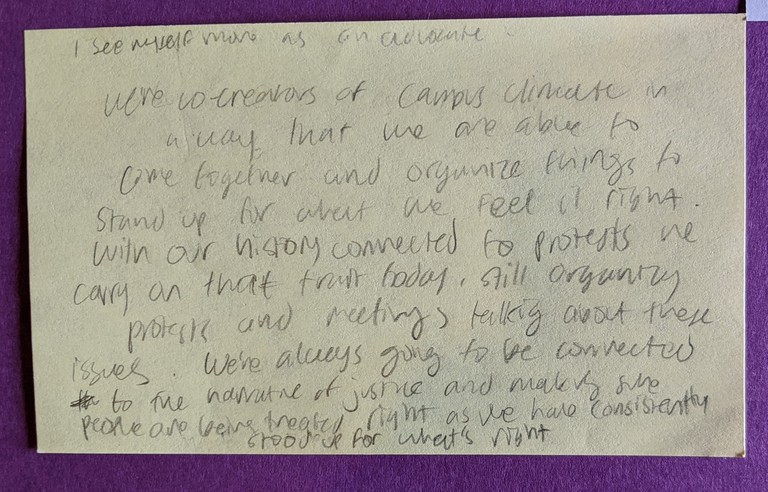 I see myself more as an advocate.
We're co-creators of campus climate in
a way that we are able to
come together and organize things to
stand up for what we feel is right.
With our history connected to protests we
carry on that trait today, still organizing
protests and meetings talking about these
issues. We're always going to be connected
to the narrative of justice and making sure
people are being treated right as we have consistently
stood up for what's right